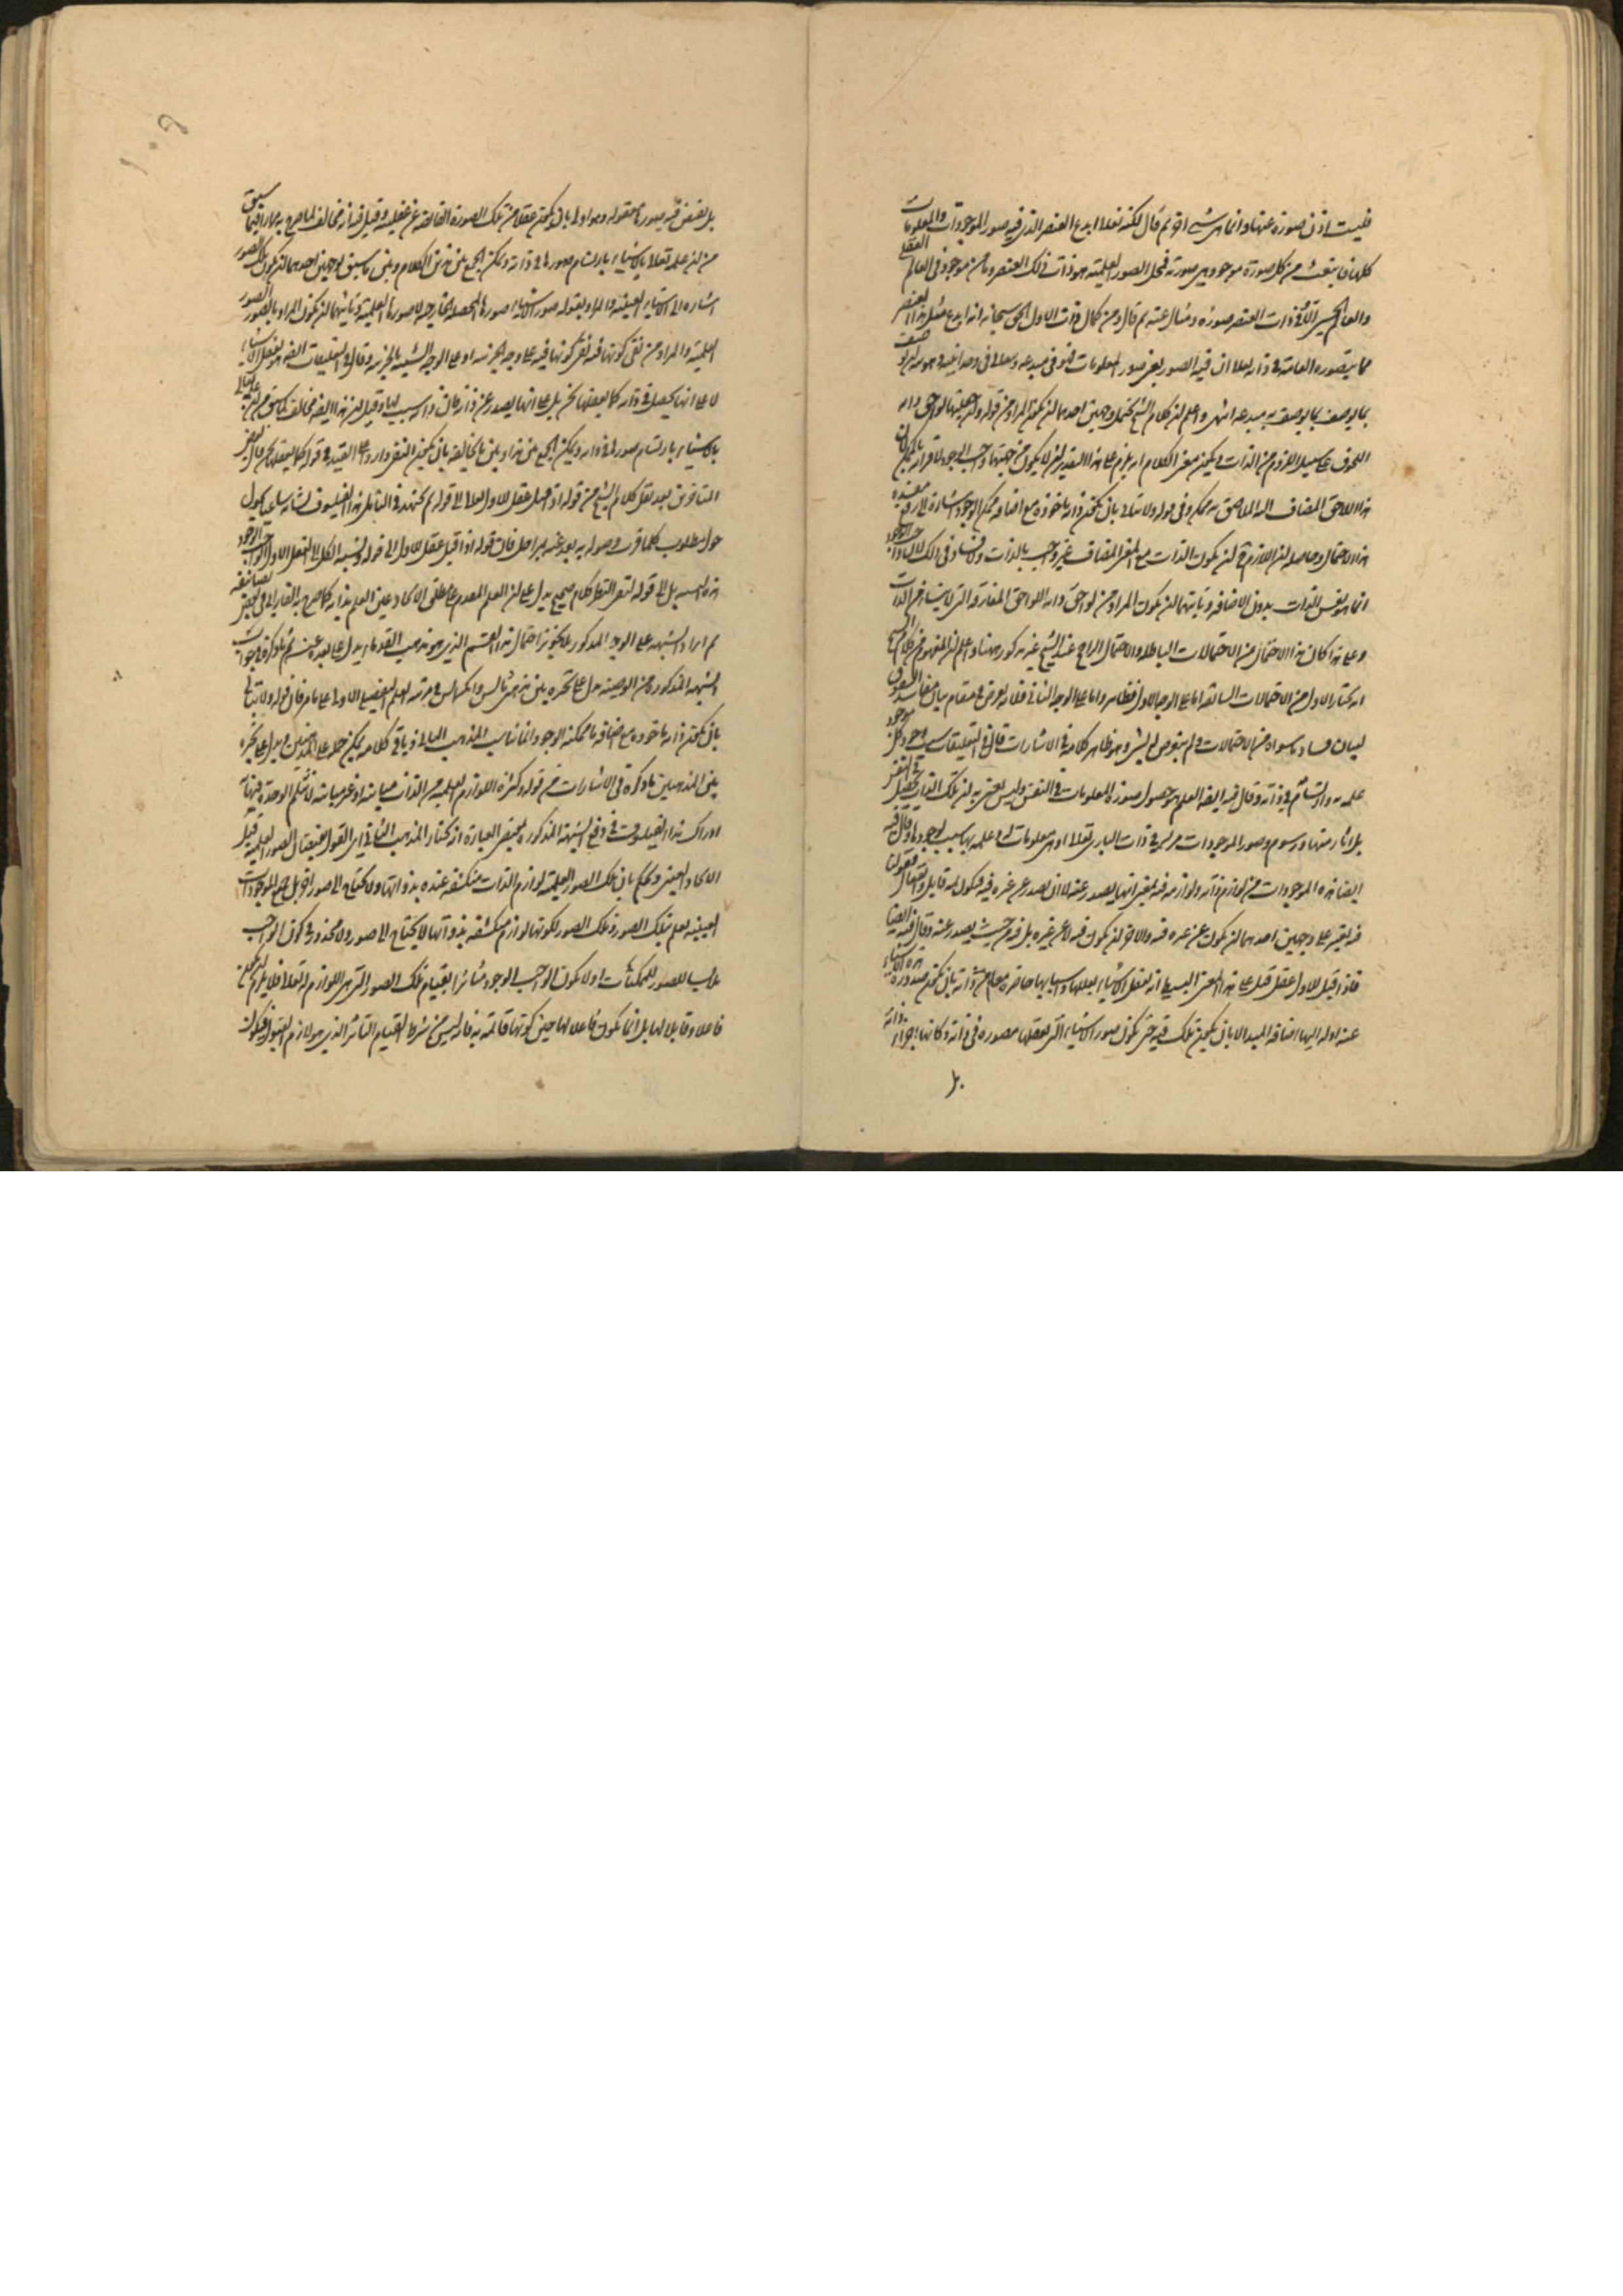 فليست اذن صورة عنها وانما هى شىء اخر ثم قال لكنه تعالى ابدع العنصر الذى فيه صور الموجودات والمعلومات
كلها فانبعث من كل صورة موجود هى صورته فمحل الصور العلمية هو ذات ذلك العنصر وما من موجود فى العالم العقلى
والعالم الحسى الا وفى ذات العنصر صورة ومثال عنه ثم قال ومن كمال ذات الاول الحق سبحانه انه ابدع مثل هذا العنصر
مما يتصوره العامة فى ذاته تعالى ان فيه الصور يعنى صور المعلومات فهو فى مبدعه وتعالى فى وحدانيته وهويته ان
يوصف بما يوصف به مبدعه انتهى واعلم ان كلام الشيخ يحتمل وجهين احدهما ان يكون المراد من قوله وان جعلتها لواحق ذاته
اللحوق على سبيل اللزوم من الذات ويكون معنى الكلام انه يلزم على هذا التقدير ان لا يكون من جهتها واجب الوجود
هذا اللاحق المضاف اليه الملاصق به ممكن وفى قوله ولا نبالى بان يكون ذاته ماخوذة مع اضافة ممكن الوجود اشارة الى دفع
هذا الاحتمال وحاصله ان اللازم ان يكون الذات مع المعنى المضاف غير واجب بالذات ولا فساد فى ذلك
انما هو نفس الذات بدون الاضافة وثانيهما ان يكون المراد من لواحق ذاته اللواحق المفارقة التى
وعلى هذا كان هذا الاحتمال من الاحتمالات الباطلة والاحتمال الراجح عند الشيخ غير مذكور ههنا واعلم ان المفهوم من كلام الشيخ
انه يختار الاول من الاحتمالات السابقة اما على الوجه الاول فظاهر واما على الوجه الثانى فلانه تعرض فى مقام بيان مفاسد الشقوق
لبيان فساد ما سواه من الاحتمالات ولم يتعرض له بشىء وهو ظاهر كلامه فى الاشارات قال فى التعليقات وجود كل موجود
علمه به وارتسام فى ذاته وقال فيه ايضا العلم هو حصول صور المعلومات فى النفس وليس نعنى به ان تلك الذوات تحصل فى النفس
بل آثار منها ورسوم وصور الموجودات مرتسمة فى ذات البارى تعالى اذ هى معلومات له وعلمه بها سبب لوجودها وقال فيه
ايضا هذه الموجودات من لوازم ذاته ولوازمه فيه بمعنى انها يصدر عنه لا ان يصدر عن غيره فيه فيكون ثمة قابل وانفعال
فيه يعتبر على وجهين احدهما ان يكون عن غيره فيه والآخر ان يكون فيه لا عن غيره بل فيه من حيث يصدر عنه وقال فيه ايضا
فاذا قيل للاول عقل قيل على هذا المعنى البسيط انه تعقل الاشياء بعللها واسبابها حاضرة معها من ذاته بان يكون صدور هذه الاشياء
عنه اذ له اليها اضافة المبدأ لا بان يكون تلك فيه حتى يكون صور الاشياء التى يعقلها متصورة فى ذاته وكانها اجزاء ذاته
بل
بل يفيض عنه صورها معقولة وهو اولى بان يكون عقلا من تلك الصورة الفائضة عن عقليته وقيل فيه انه مخالف لما صرح به مرارا فيما سبق
من ان علمه تعالى بالاشياء بارتسام صورها فى ذاته ويمكن الجمع بين هذا الكلام وبين ما سبق بوجهين احدهما ان يكون تلك الصور
اشارة الى الاشياء العينية والمراد بقوله صور الاشياء صورها المحصلة الخارجية لا صورها العلمية وثانيهما ان يكون المراد بالصور
العلمية والمراد من نفى كونها فيه نفى كونها فيه على وجه الجزئية او على الوجه الشبيه بالجزئية وقال فى التعليقات ايضا هو يعقل الاشياء
لا على انها تحصل فى ذاته كما يعقلها نحن بل على انها يصدر عن ذاته فان ذاته سبب لها وقيل ان هذا ايضا مخالف لما سبق من ان علمه تعالى
بالاشياء بارتسام صورها فى ذاته ويمكن الجمع بين هذا وبين ما يخالفه بان يكون النفى واردا على القيد فى قوله كما يعقلها نحن قال بعض
المتاخرين بعد نقل كلام الشيخ من قوله اذ قيل عقل للاول تعالى الى قوله ثم يجتهد فى التامل هذا الفيلسوف
حول مطلوب كلما قرب وصوله به يبعد عنه بمراحل فان قوله اذا قيل عقل للاول الى قوله نسبة الكل الى العقل الاول الواجب الوجود
هذه النسبة بل الى قوله لنفس النظر كلام صحيح يدل على ان العلم المقدم على مطلق الايجاد عين العلم بذاته كما صرح به الفارابى فى بعض تصانيفه
ثم ايراد الشبهة على الوجه المذكور بتجويز احتمال هذا القسم الذى هو مذهب القدماء يدل على بعده عنه ثم ما ذكره فى جواب
الشبهة المذكورة من الوجهين يدل على تحيره بين مذهبى ثاليس وانكسيمانس فى مرتبة العلم التفصيلى الاول على ما مر فان قوله ولا نبالى
بان يكون ذاته ماخوذة مع اضافة ما ممكنة الوجود انما يناسب المذهب الثانى وباقى كلامه يمكن حمله على المذهبين ويدل على تحيره
بين المذهبين ما ذكره فى الاشارات من قوله وكثرة اللوازم العلمية من الذات مباينة او غير مباينة لا تثلم الوحدة فنهاية
ادراك هذا الفيلسوف فى دفع الشبهة المذكورة بمقتضى العبارة اختار المذهب الثانى اى القول بفيضان الصور العلمية قبل
الايجاد العينى وحكم بان تلك الصور العلمية لوازم الذات منكشفة عنده بذواتها ولا يحتاج الى صور اخر بل جميع الموجودات
العينية يعلم بتلك الصور وتلك الصور لكونها لوازم منكشفة بذواتها لا يحتاج الى صور ولا محذور فى كون الواجب
محلا للصور الممكنات اذ لا يكون الواجب الوجود متأثرا بقيام تلك الصور التى هى اللوازم له تعالى فلا يلزم ان يكون
فاعلا وقابلا لها بل انما يكون فاعلا لها حين كونها قائمة به فانه ليس من شرط القيام التأثر الذى هو لازم القبول فيكون